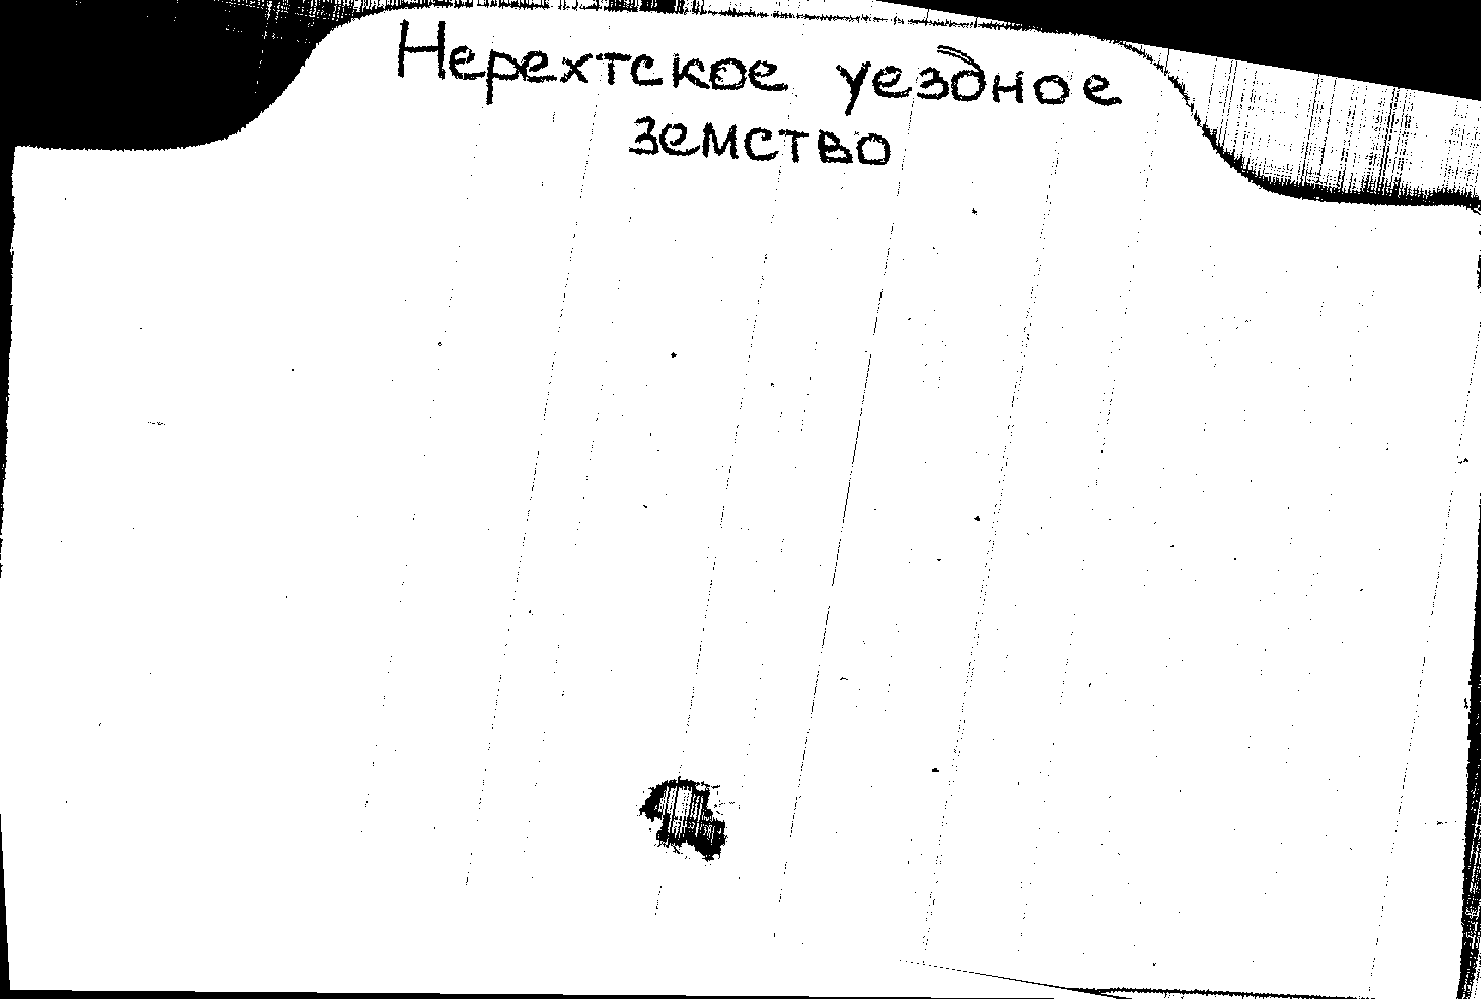 Нерехтское уездное
земство